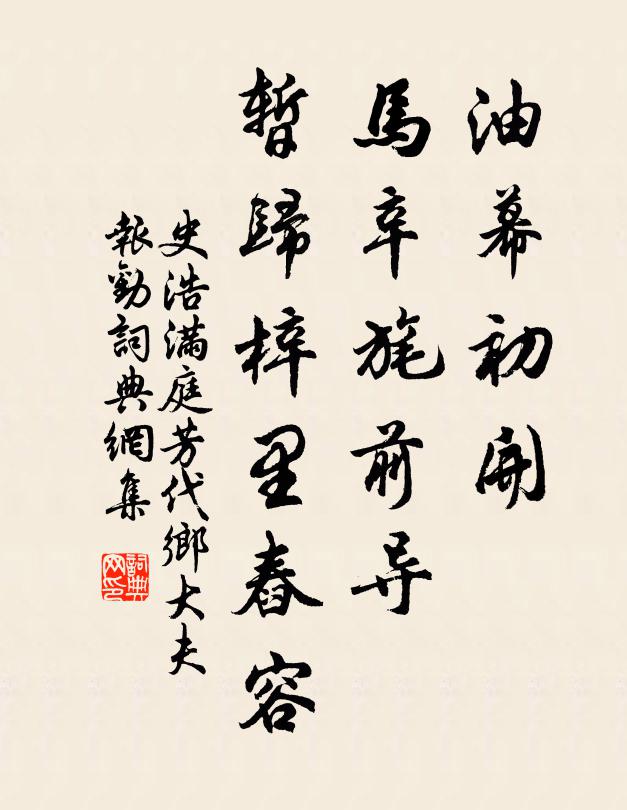 油幕初開
馬卒旄前导
暫歸梓里舂容
史浩滿庭芳代鄉大夫
報勸詞典網集
詞典网印